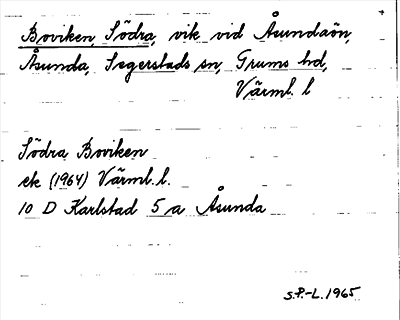 Boviken, Södra, vik vid Åsundaön,
Åsunda, Segerstads sn, Grums hd,
Värml. l
Södra Boviken
ek (1964) Värml. l.
10 D Karlstad 5 a Åsunda
S.P.-L. 1965